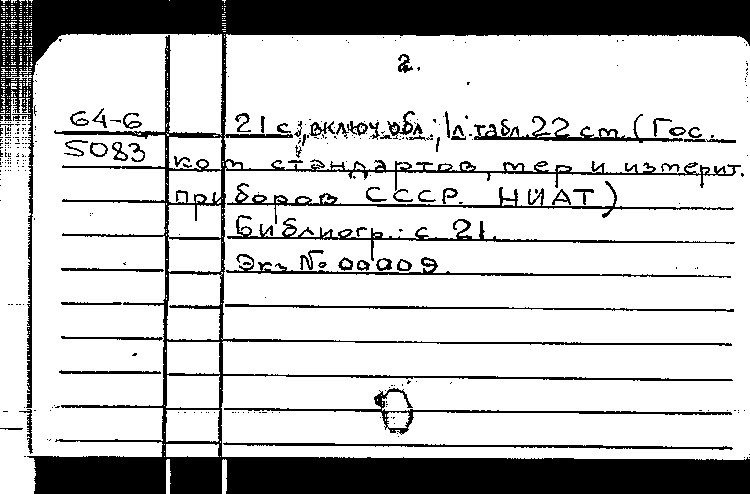 2.
64-6 21 с, включ обл.; 1 л. табл. 22 см. (Гос.
5083 ком. стандартов, мер и измерит.
приборов СССР. НИАТ)
Библиогр.: с 21.
Экз № 00009.